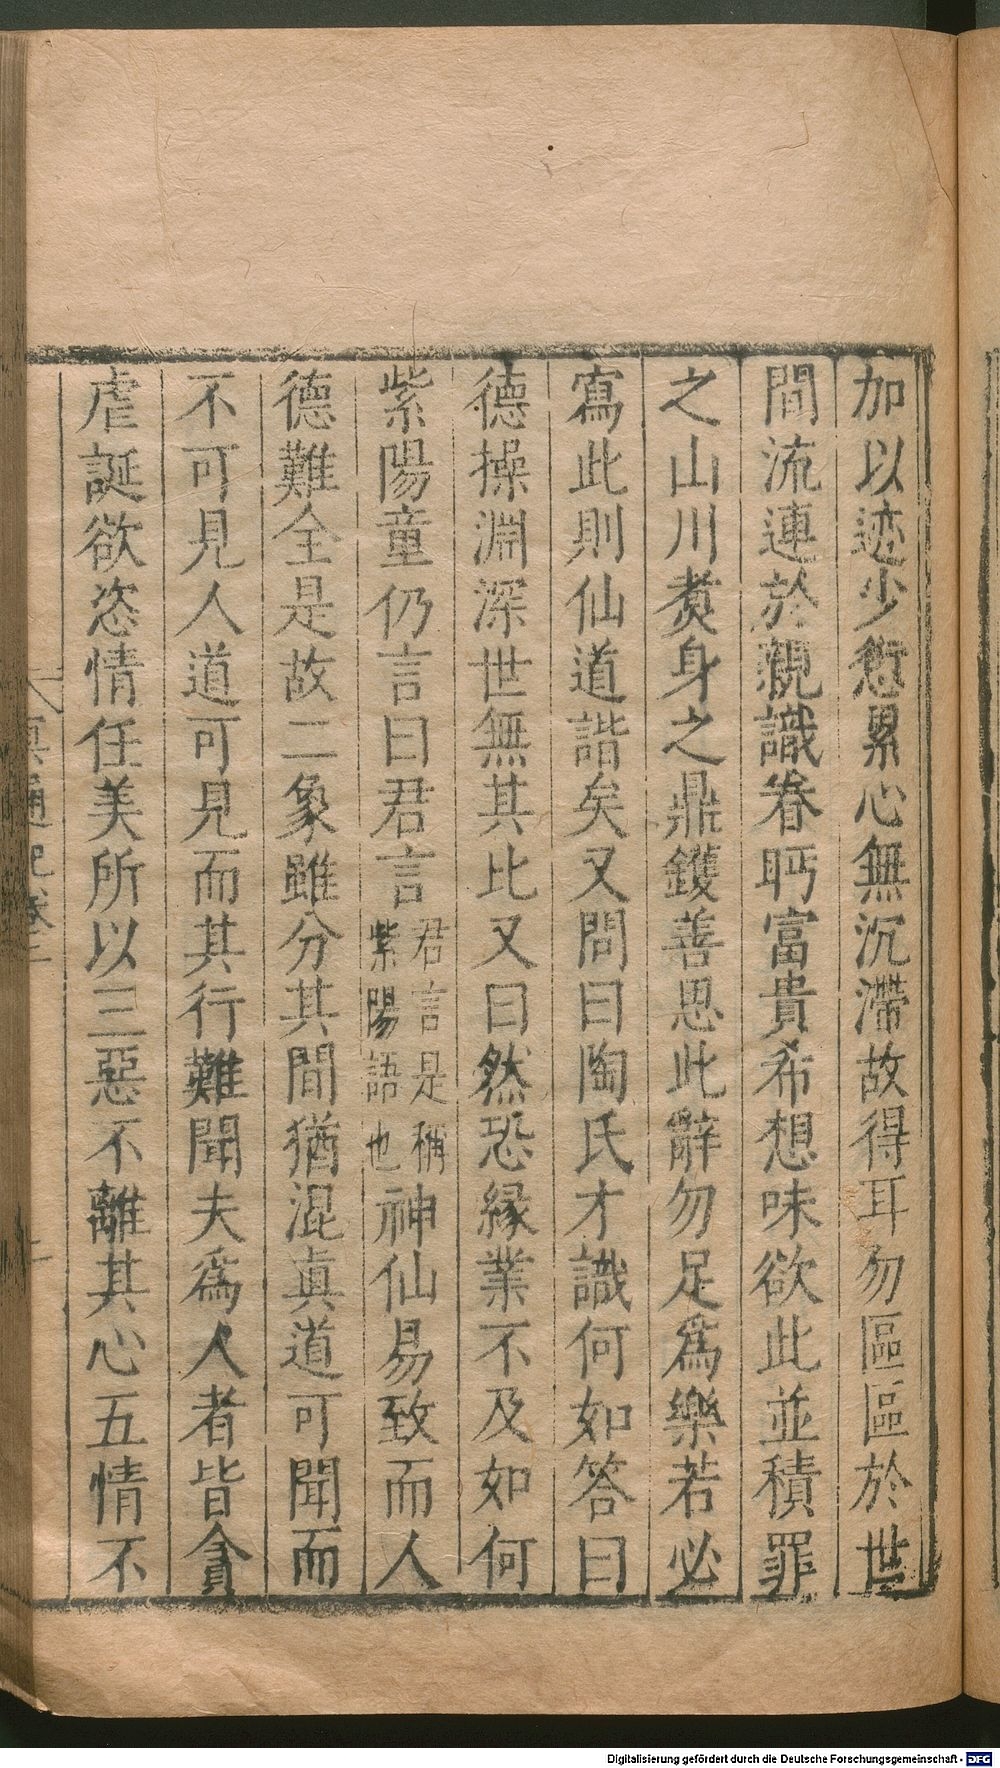 加以迹少愆累心無沉滯故得耳勿區區於世
間流連於親識眷眄富貴希想味欲此並積罪
之山川煑身之鼎鑊善思此辭勿足爲樂若必
寫此則仙道諧矣又問曰陶氏才識何如答曰
德操淵深世無其比又曰然恐緣業不及如何
紫陽童仍言曰君言君言是稱紫陽語也神仙易致而人
德難全是故二象雖分其間猶混眞道可聞而
不可見人道可見而其行難聞夫爲人者皆貪
虐誕欲恣情任美所以三惡不離其心五情不
冥通記卷二
Digitalisierung gefördert durch die Deutsche Forschungsgemeinschaft - DFG